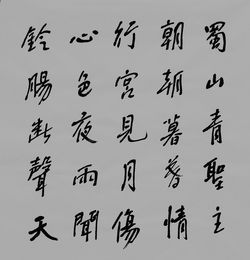 蜀山青聖主
朝朝暮暮情
行宮見月傷
心色夜雨聞
鈴腸断聲天